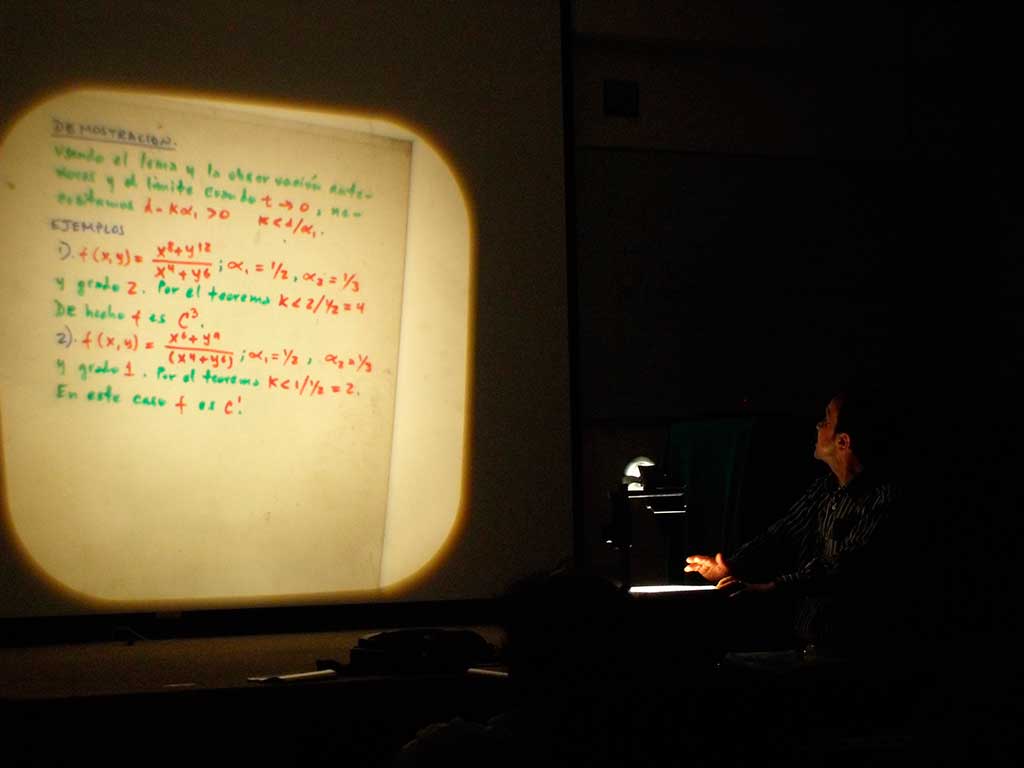 DEMOSTRACION.
Usando el lema y la observación ante-
riores y el límite cuando t → 0, ne-
cesitamos 1 - Kα₁ > 0   K < 1/α₁.
EJEMPLOS
1). f(x,y) = (x⁸+y¹²)/(x⁴+y⁶) ; α₁ = 1/2, α₂ = 1/3
y grado 2. Por el teorema K < 2/1/2 = 4
De hecho f es C³.
2). f(x,y) = (x⁶+y⁹)/(x⁴+y⁶) ; α₁ = 1/2, α₂ = 1/3
y grado 1. Por el teorema K < 1/1/2 = 2.
En este caso f es C¹.